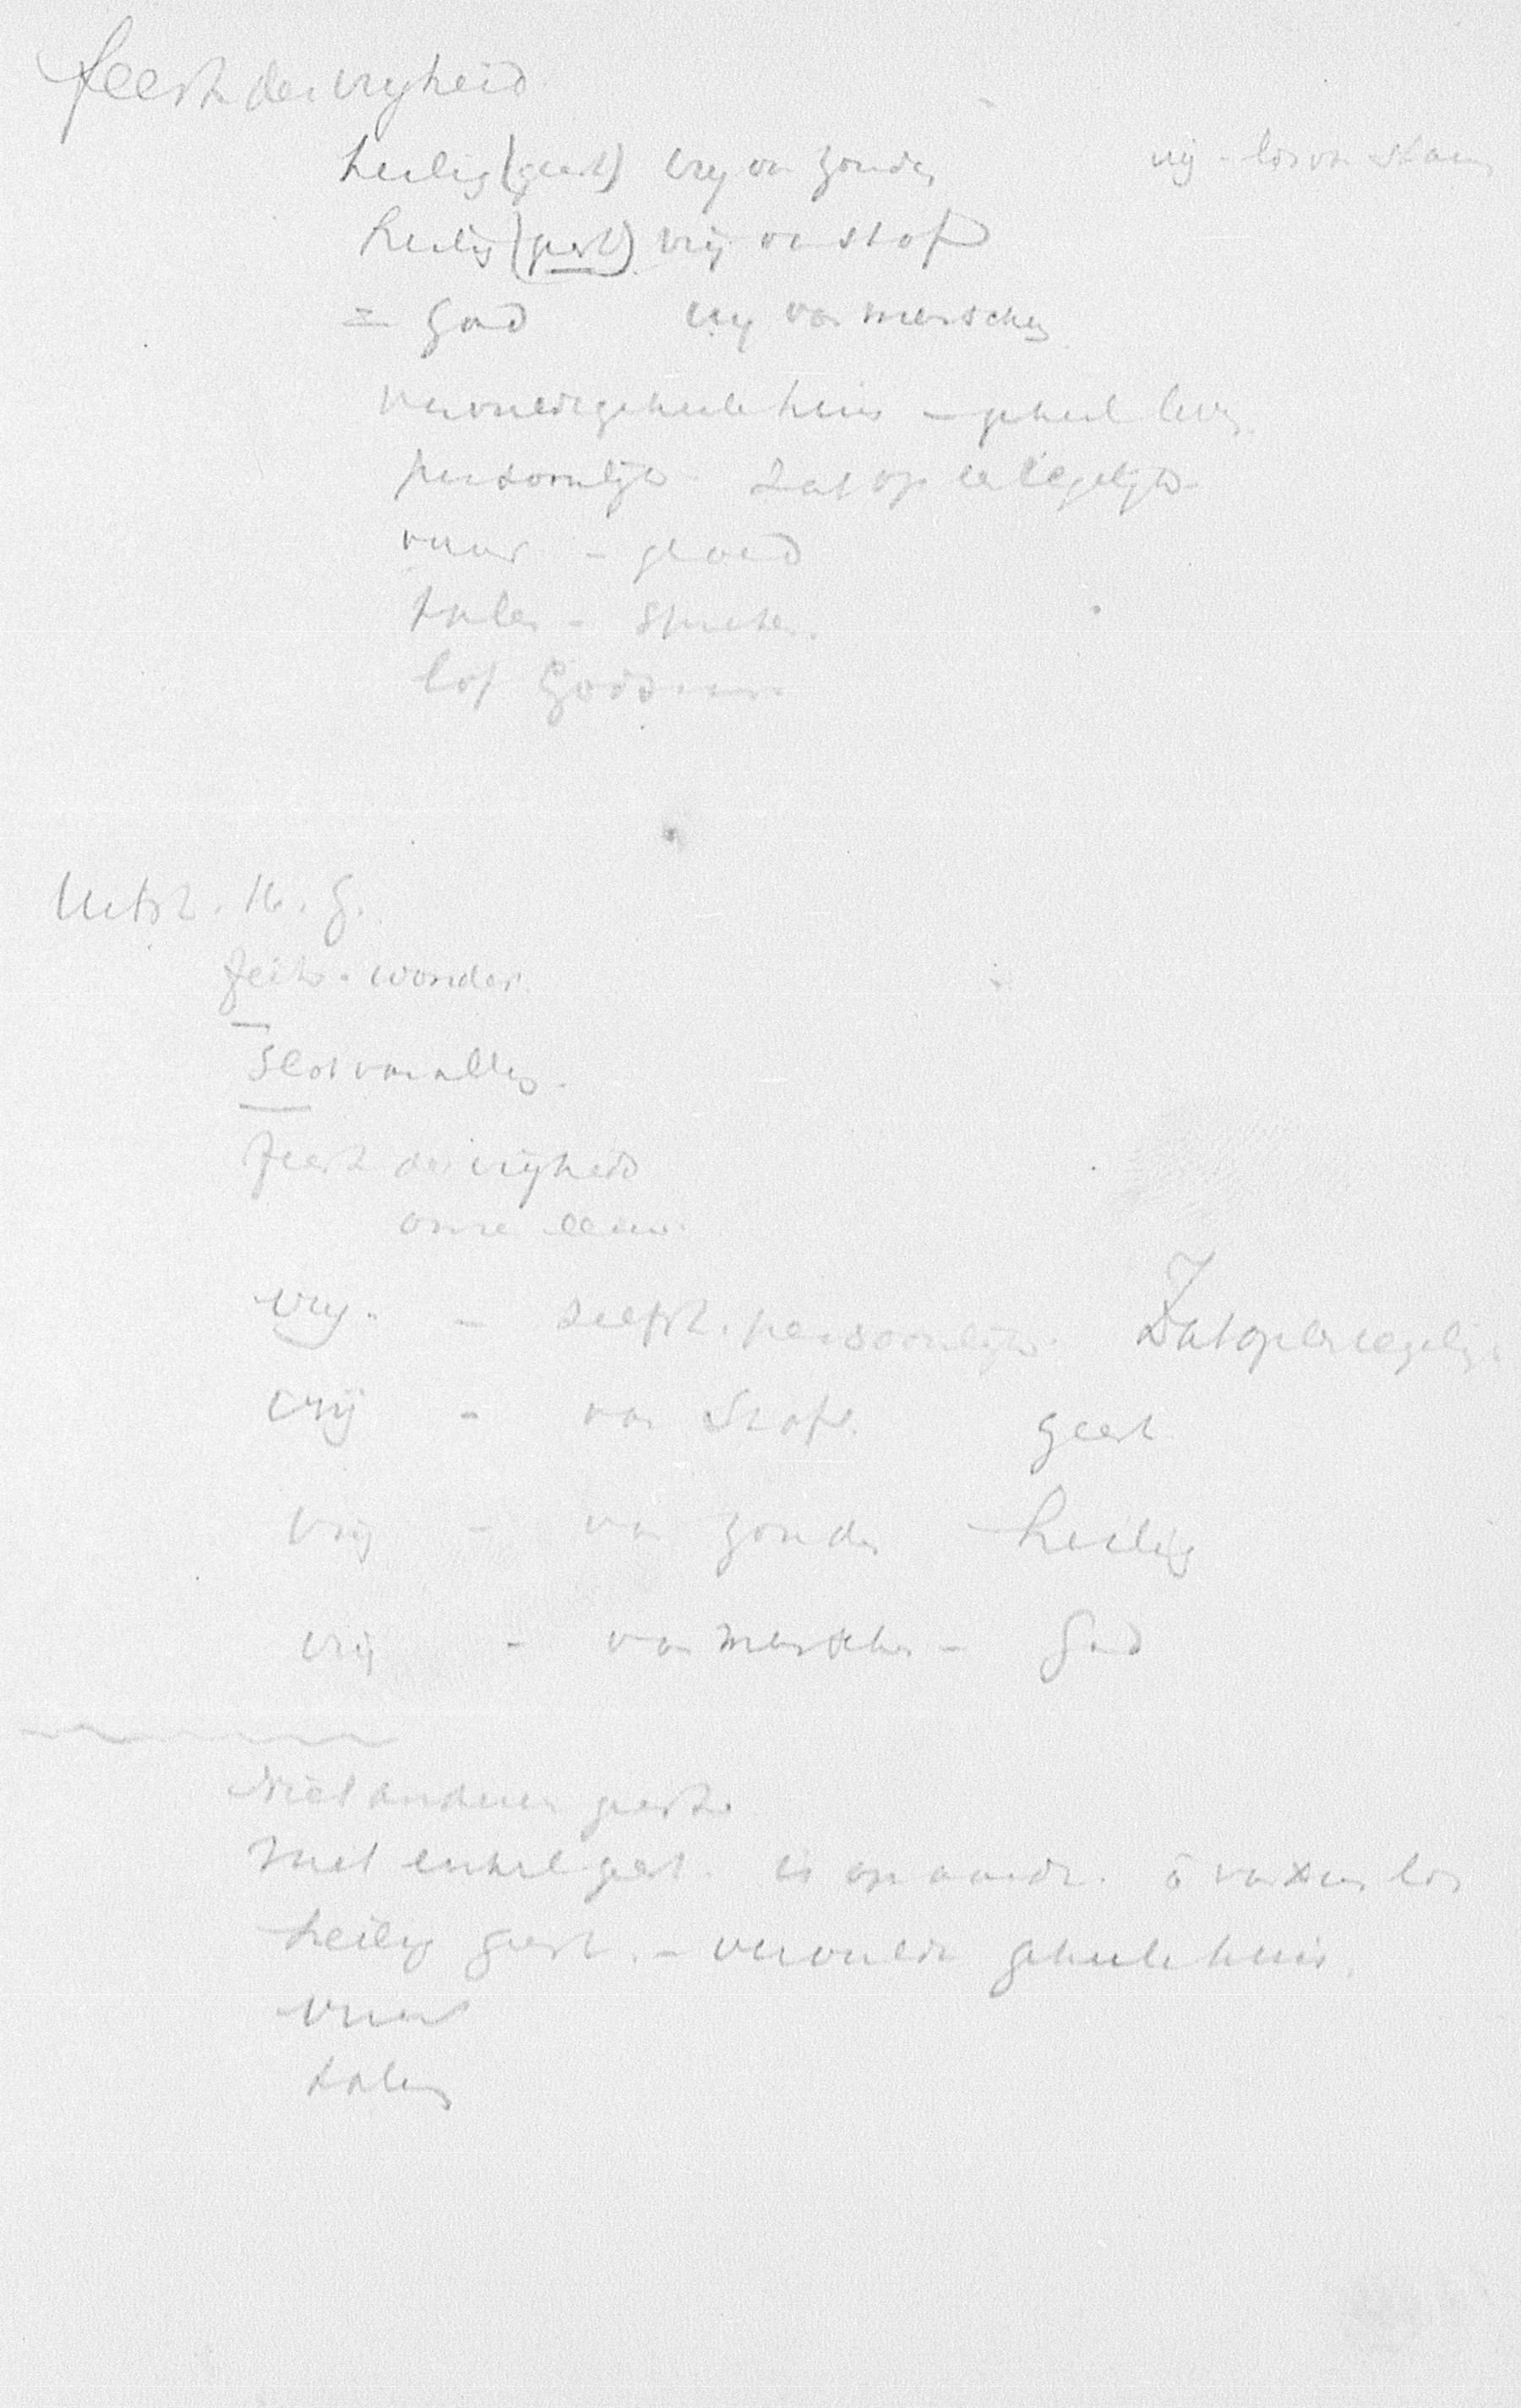 feest der vryheid
heilig (geest) vry van zonden vrij - los van
heilig (geest) vrij van stof
= God vry van menschen
vervulde geheele huis - geheel leven
persoonlijk - Zat op een iegelijk
vuur - gloed
talen - spreken.
lof Gods
Uitst. H. G.
feit - wonder.
Slot van alles.
feest der vrijheid
onze eeuw.
vry. - zelfst. persoonlijk. Zat op een iegelijk
vrij - van Stof. geest
vrij - van zonden heilig
vrij - van menschen - God
Niet anderen geest
Niet enkel geest. is op aarde. los
heilig geest. - vervulde geheele huis.
vuur
talen